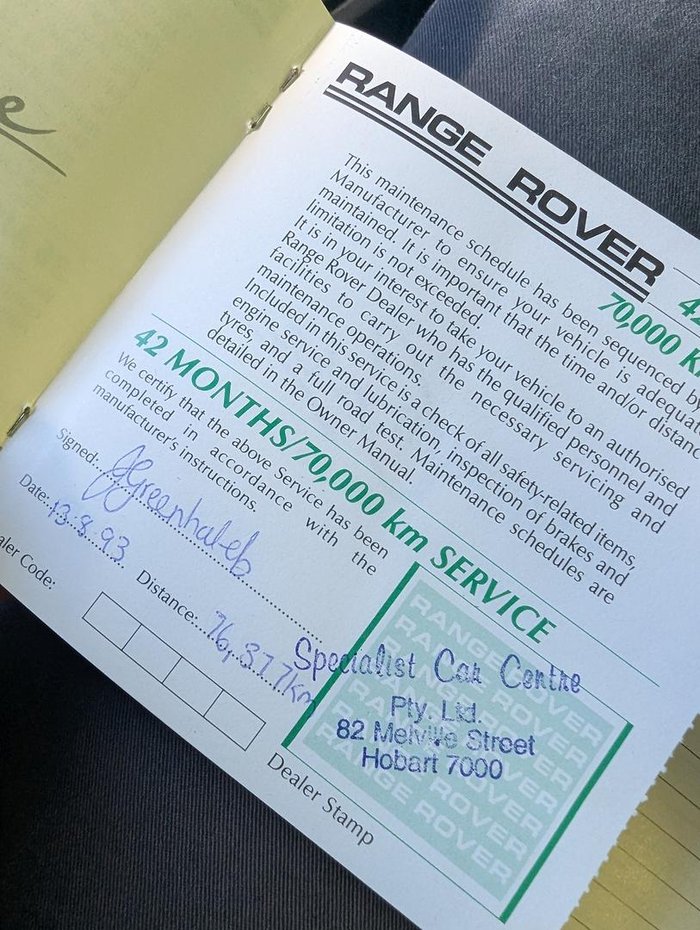 e
RANGE ROVER
42
70,000 K
This maintenance schedule has been sequenced by
Manufacturer to ensure your vehicle is adequat
maintained. It is important that the time and/or distanc
limitation is not exceeded.
It is in your interest to take your vehicle to an authorised
Range Rover Dealer who has the qualified personnel and
facilities to carry out the necessary servicing and
maintenance operations.
Included in this service is a check of all safety-related items,
engine service and lubrication, inspection of brakes and
tyres, and a full road test. Maintenance schedules are
detailed in the Owner Manual.
42 MONTHS/70,000 km SERVICE
We certify that the above Service has been
completed in accordance with the
manufacturer's instructions.
Signed:
Date: 13.8.93
Distance: 76,877km
aler Code:
Specialist Car Centre
Pty. Ltd.
82 Melville Street
Hobart 7000
Dealer Stamp
RANGE ROVER
RANGE ROVER
RANGE ROVER
RANGE ROVER
RANGE ROVER
RANGE ROVER
RANGE ROVER